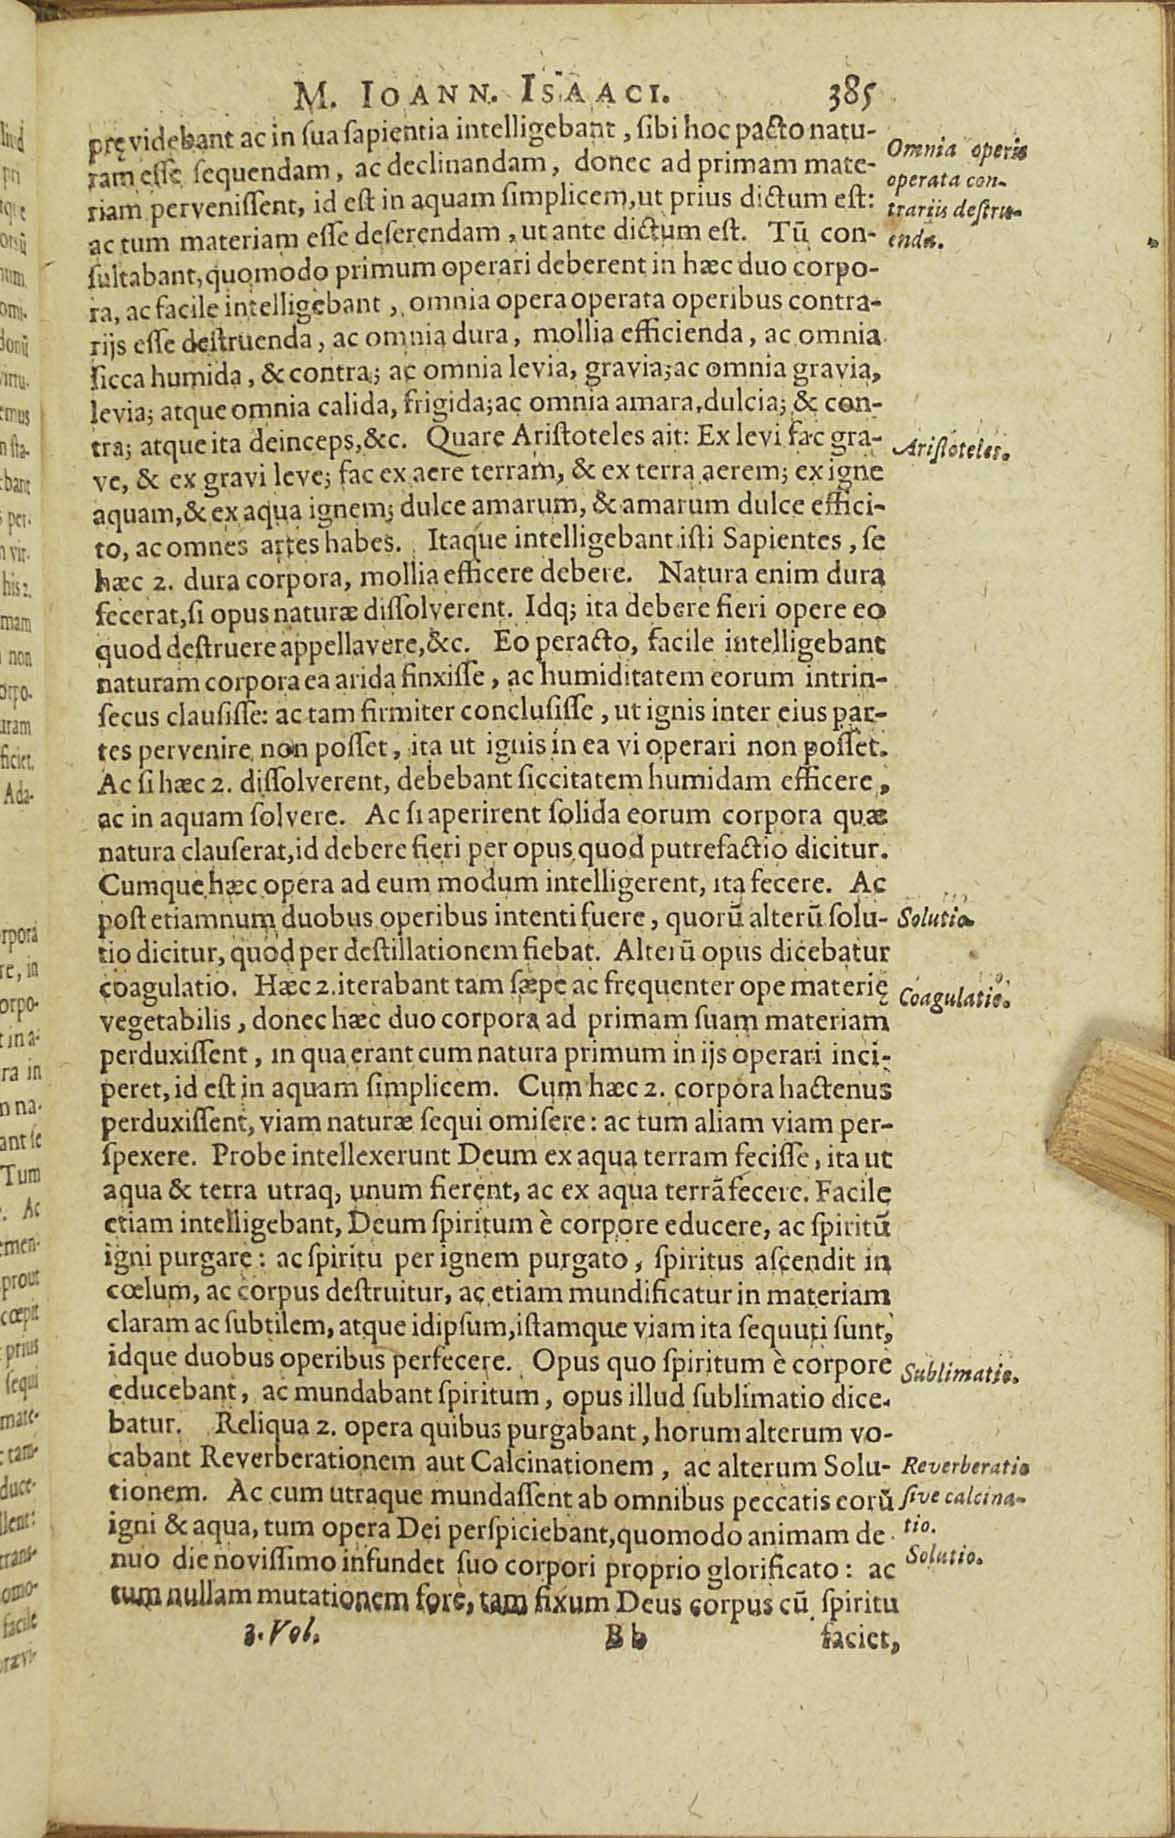 M. IOANN. ISAACI. 385
pręvidebant ac in ſua ſapientia intelligebant, ſibi hoc pacto natu-
ram eſſe ſequendam, ac declinandam, donec ad primam mate-
riam perveniſſent, id eſt in aquam ſimplicem, ut prius dictum eſt:
ac tum materiam eſſe deſerendam, ut ante dictum eſt. Tũ con-
ſultabant, quomodo primum operari deberent in hæc duo corpo-
ra, ac facile intelligebant, omnia opera operata operibus contra-
rijs eſſe deſtruenda, ac omnia dura, mollia efficienda, ac omnia
ſicca humida, & contra; ac omnia levia, gravia; ac omnia gravia,
levia; atque omnia calida, frigida; ac omnia amara, dulcia; & con-
tra; atque ita deinceps, &c. Quare Ariſtoteles ait: Ex levi fac gra-
ve, & ex gravi leve; fac ex aere terram, & ex terra aerem; ex igne
aquam, & ex aqua ignem; dulce amarum, & amarum dulce effici-
to, ac omnes artes habes. Itaque intelligebant iſti Sapientes, ſe
hæc 2. dura corpora, mollia efficere debere. Natura enim dura
fecerat, ſi opus naturæ diſſolverent. Idq; ita debere fieri opere eo
quod deſtruere appellavere, &c. Eo peracto, facile intelligebant
naturam corpora ea arida finxiſſe, ac humiditatem eorum intrin-
ſecus clauſiſſe: ac tam firmiter concluſiſſe, ut ignis inter eius par-
tes pervenire non poſſet, ita ut ignis in ea vi operari non poſſet.
Ac ſi hæc 2. diſſolverent, debebant ſiccitatem humidam efficere,
ac in aquam ſolvere. Ac ſi aperirent ſolida eorum corpora quæ
natura clauſerat, id debere fieri per opus quod putrefactio dicitur.
Cumque hæc opera ad eum modum intelligerent, ita fecere. Ac
poſt etiamnum duobus operibus intenti fuere, quorũ alterũ ſolu-
tio dicitur, quod per deſtillationem fiebat. Alterũ opus dicebatur
coagulatio. Hæc 2. iterabant tam ſæpe ac frequenter ope materię
vegetabilis, donec hæc duo corpora ad primam ſuam materiam
perduxiſſent, in qua erant cum natura primum in ijs operari inci-
peret, id eſt in aquam ſimplicem. Cum hæc 2. corpora hactenus
perduxiſſent, viam naturæ ſequi omiſere: ac tum aliam viam per-
ſpexere. Probe intellexerunt Deum ex aqua terram feciſſe, ita ut
aqua & terra utraq, unum fierent, ac ex aqua terrã fecere. Facile
etiam intelligebant, Deum ſpiritum è corpore educere, ac ſpiritũ
igni purgare: ac ſpiritu per ignem purgato, ſpiritus aſcendit in
cœlum, ac corpus deſtruitur, ac etiam mundificatur in materiam
claram ac ſubtilem, atque idipſum, iſtamque viam ita ſequuti ſunt,
idque duobus operibus perfecere. Opus quo ſpiritum è corpore
educebant, ac mundabant ſpiritum, opus illud ſublimatio dice-
batur. Reliqua 2. opera quibus purgabant, horum alterum vo-
cabant Reverberationem aut Calcinationem, ac alterum Solu-
tionem. Ac cum utraque mundaſſent ab omnibus peccatis eorũ
igni & aqua, tum opera Dei perſpiciebant, quomodo animam de
nuo die noviſſimo infundet ſuo corpori proprio glorificato: ac
tum nullam mutationem fore, tam fixum Deus corpus cũ ſpiritu
3. Vol. B b faciet,
Omnia operis
operata con-
trariis deſtru-
enda.
Ariſtoteles.
Solutio.
Coagulatio.
Sublimatio.
Reverberatio
ſive calcina-
tio.
Solutio.